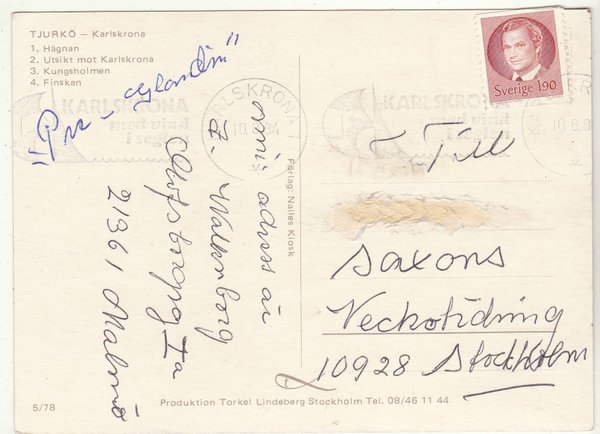 TJURKÖ – Karlskrona
1. Hägnan
2. Utsikt mot Karlskrona
3. Kungsholmen
4. Finskan
KARLSKRONA
med vind
i seglen
KARLSKRONA
10.8.84
KARLSKRONA
med vind
i seglen
10.8.8
Sverige 190
adress är
Wallenborg
21361 Malmö
Förlag: Nalles Kiosk
Till
Saxons
Veckotidning
10928 Stockholm
5/78
Produktion Torkel Lindeberg Stockholm Tel. 08/46 11 44